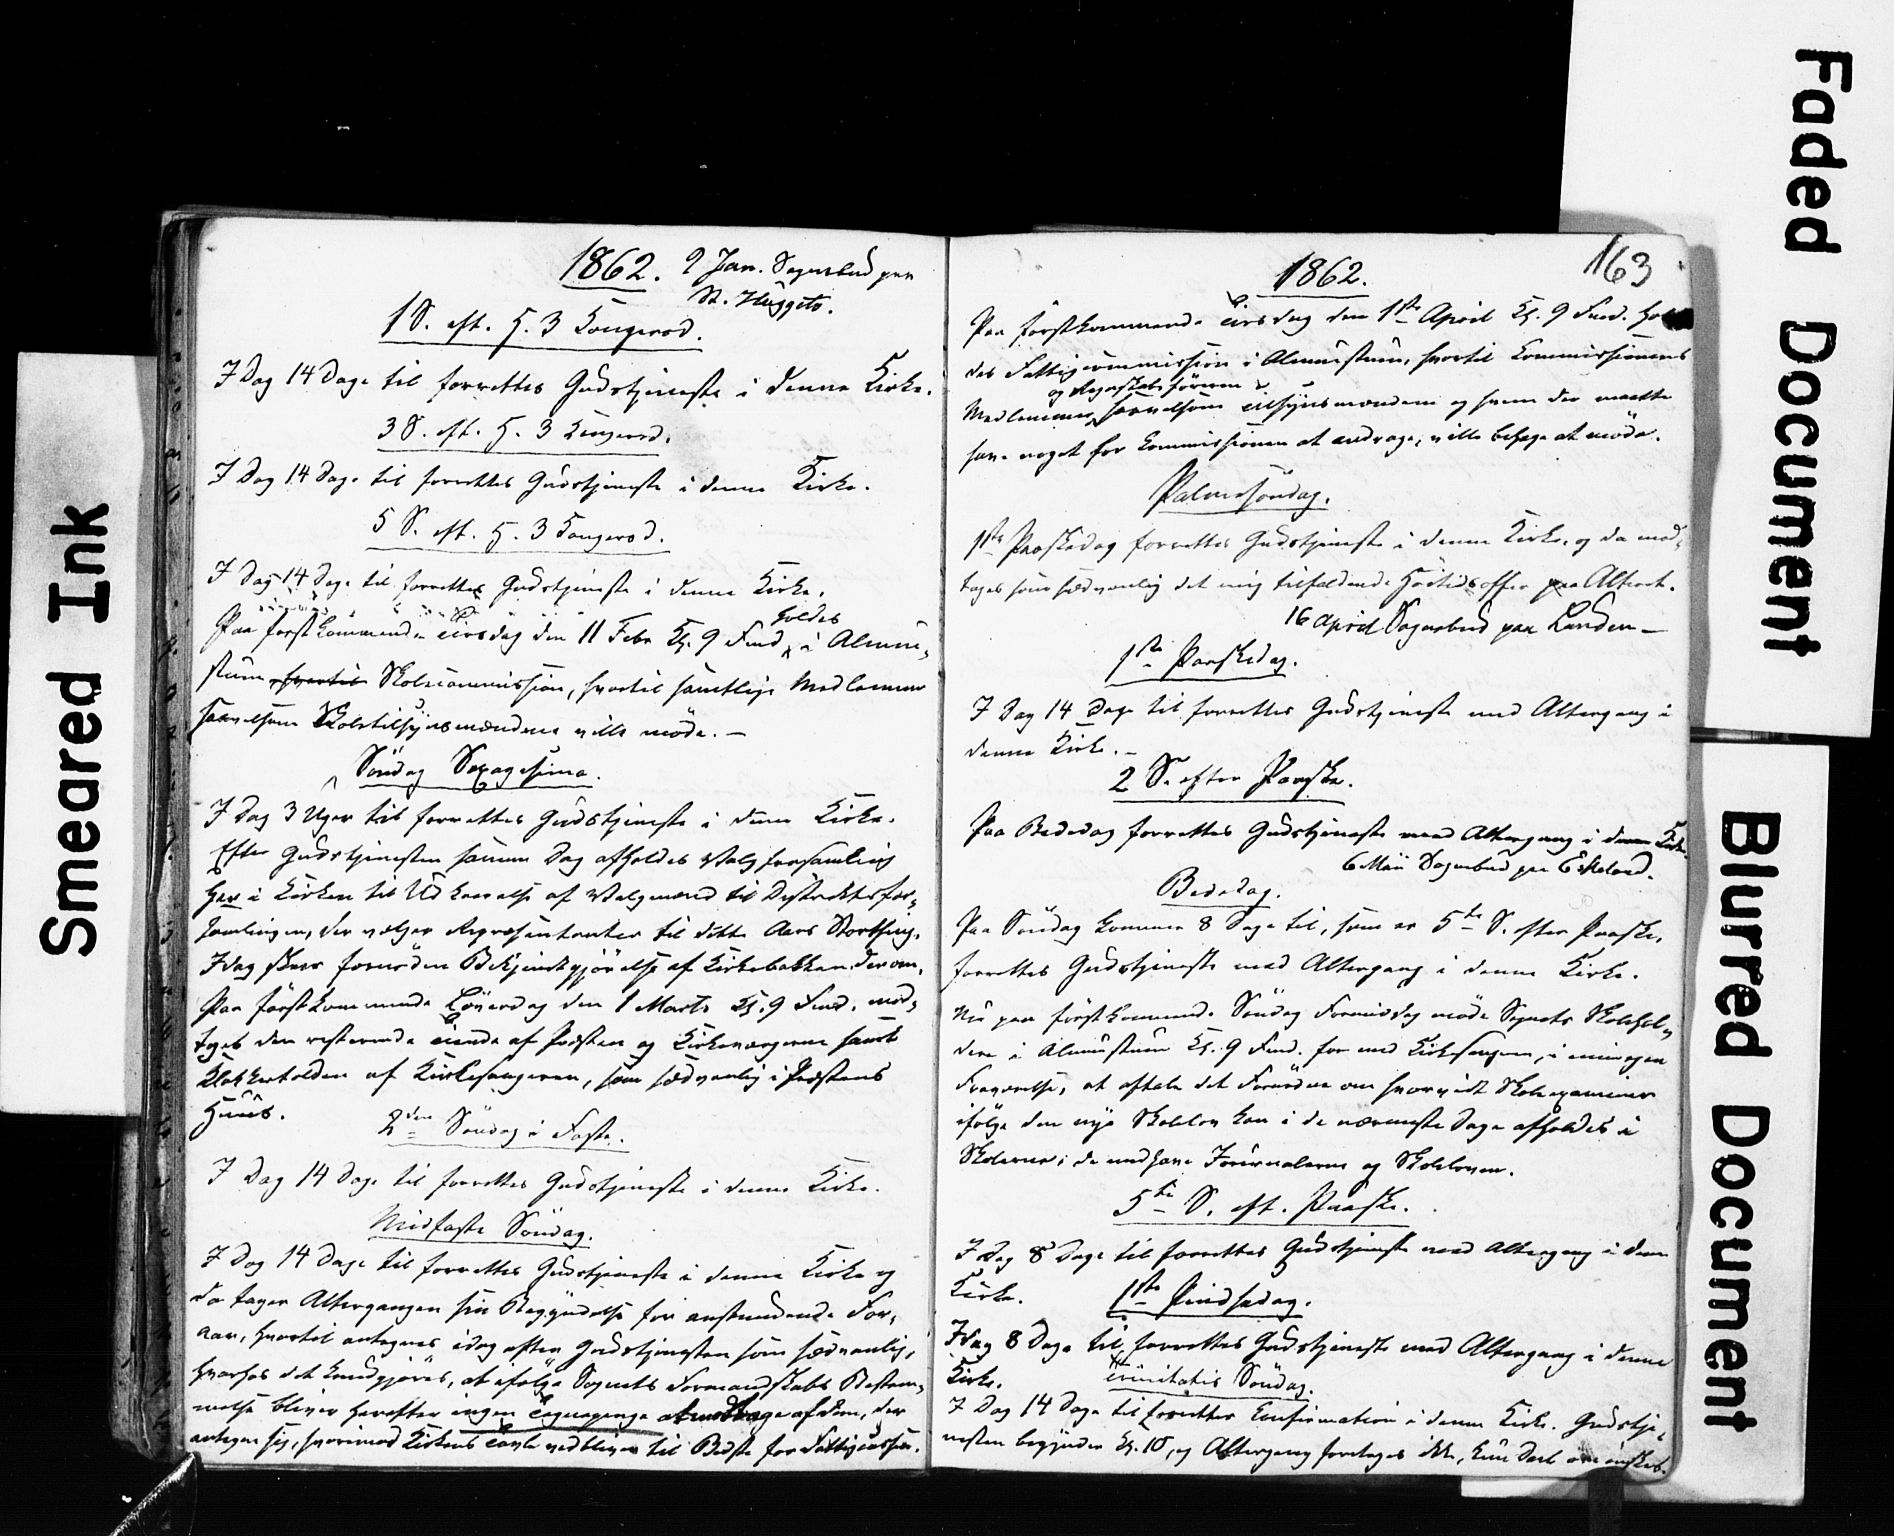 1862. 9 Jan. Sognebud paa
St. Huggets.
1 S. eft. H. 3 Kongersd.
I Dag 14 Dage til forrettes Gudstjeneste i denne Kirke.
3 S. eft. H. 3 Kongersd.
I Dag 14 Dage til forrettes Gudstjeneste i denne Kirke.
5 S. eft. H. 3 Kongersd.
I Dag 14 Dage til forrettes Gudstjeneste i denne Kirke.
Paa førstkommende Tirsdag den 11 Febr Kl. 9 Fmd holdes i Almue-
stuen hvortil Skolecommission, hvortil samtlige Medlemmer
saavelsom Skoletilsynsmændene ville møde. —
Søndag Sexagesima.
I Dag 3 Uger til forrettes Gudstjeneste i denne Kirke.
Efter Gudstjenesten samme Dag afholdes Valgforsamling
her i Kirken til Udkaarelse af Valgmænd til Distriktsfor-
samlingen, der vælger Repræsentanter til dette Aars Storthing.
Idag skeer fornøden Bekjendtgjørelse af Kirkebakken derom.
Paa førstkommende Løverdag den 1 Marts Kl. 9 Fmd. mod-
tages den resterende Tiende af Præsten og Kirkeværgerne samt
Klokkertolden af Kirkesangeren, som sædvanlig i Præstens
Huus.
2den Søndag i Faste.
I Dag 14 Dage til forrettes Gudstjeneste i denne Kirke.
Midfaste Søndag.
I Dag 14 Dage til forrettes Gudstjeneste i denne Kirke og
da tager Altergangen sin Begyndelse for anstundende For-
aar, hvortil antegnes idag efter Gudstjenesten som sædvanlig,
hvorhos det kundgjøres, at ifølge Sognets Formandskabs Bestem-
melse bliver herefter ingen Tegnepenge at modtage af dem, der
antegne sig, hvorimod Kirkens Tavle vedbliver til Bedste for Fattigcassen.
163
1862.
Paa førstkommende Tirsdag den 1ste April Kl. 9 Fmd. hol-
des Fattigcommission i Almuestuen, hvortil Commissionens
og Regnskabsføreren
Medlemmer, saavelsom Tilsynsmændene og hvem der maatte
have noget for Commissionen at andrage, ville behage at møde.
Palmesøndag.
1ste Paaskedag forrettes Gudstjeneste i denne Kirke, og da mod-
tages som sædvanlig det mig tilfaldende Høitidsoffer paa Alteret.
16 April Sognebud paa Lunden —
1ste Paaskedag.
I Dag 14 Dage til forrettes Gudstjeneste med Altergang i
denne Kirke. —
2 S. efter Paaske.
Paa Bededag forrettes Gudstjeneste med Altergang i denne Kirke.
6 Mai Sognebud paa Eskelund.
Bededag.
Paa Søndag kommer 8 Dage til, som er 5te S. efter Paaske,
forrettes Gudstjeneste med Altergang i denne Kirke.
Nu paa førstkommende Søndag Formiddag møde Sognets Skolehol-
dere i Almuestuen Kl. 9 Fmd. for med Kirkesangeren, i min egen
Fraværelse, at aftale det Fornødne om hvorvidt Skoleexaminer
ifølge den nye Skolelov kan i de nærmeste Dage afholdes i
Skolerne; de medhave Journalerne og Skoleloven.
5te S. eft. Paaske.
I Dag 8 Dage til forrettes Gudstjeneste med Altergang i denne
Kirke.
1ste Pindsedag.
Idag 8 Dage til forrettes Gudstjeneste med Altergang i denne
Kirke.
Trinitatis Søndag.
I Dag 14 Dage til forretter Confirmation i denne Kirke. Gudstje-
nesten begynder Kl. 10, og Altergang foretages ikke, kun Daab om ønskes.
Smeared Ink
Faded Document
Blurred Document